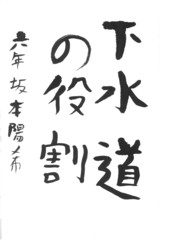 下水道
の役割
六年 坂本陽希